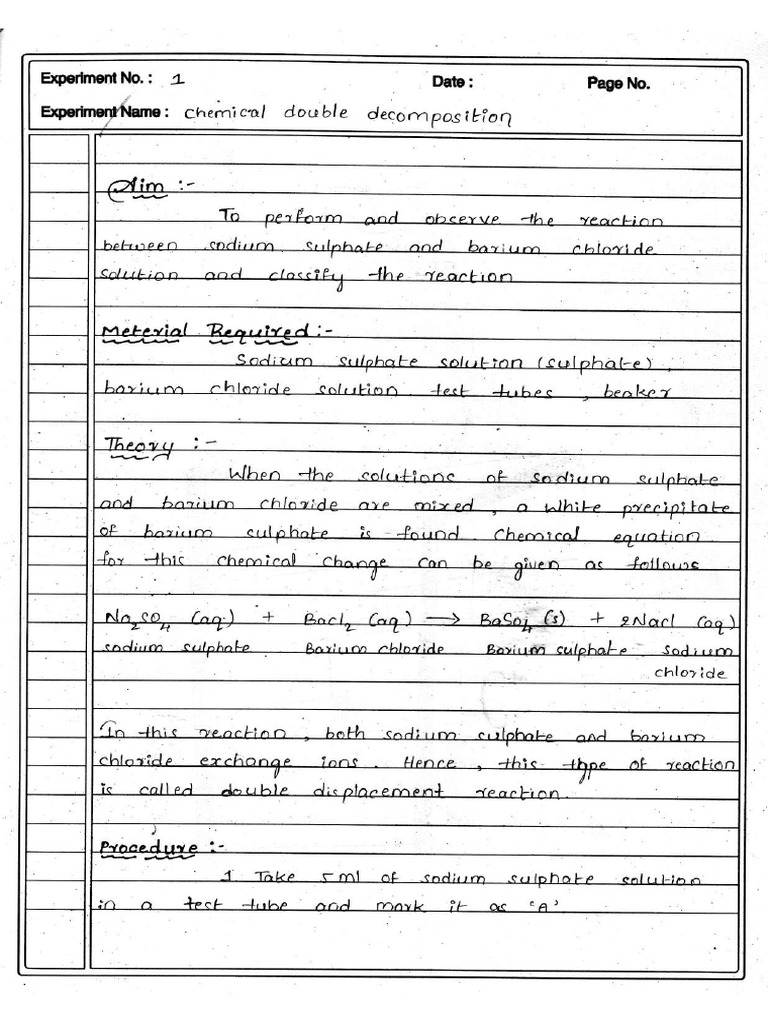 Experiment No. : 1 Date : Page No.
Experiment Name : chemical double decomposition
Aim :-
To perform and observe the reaction
between sodium sulphate and barium chloride
solution and classify the reaction
Meterial Required :-
Sodium sulphate solution (sulphate),
barium chloride solution test tubes, beaker
Theory :-
When the solutions of sodium sulphate
and barium chloride are mixed, a white precipitate
of barium sulphate is found. Chemical equation
for this chemical change can be given as follows
Na₂SO₄ (aq.) + Bacl₂ (aq) → BaSo₄ (s) + 2Nacl (aq)
sodium sulphate Barium chloride Barium sulphate sodium
chloride
In this reaction, both sodium sulphate and barium
chloride exchange ions. Hence, this type of reaction
is called double displacement reaction.
Procedure :-
1 Take 5ml of sodium sulphate solution
in a test tube and mark it as 'A'